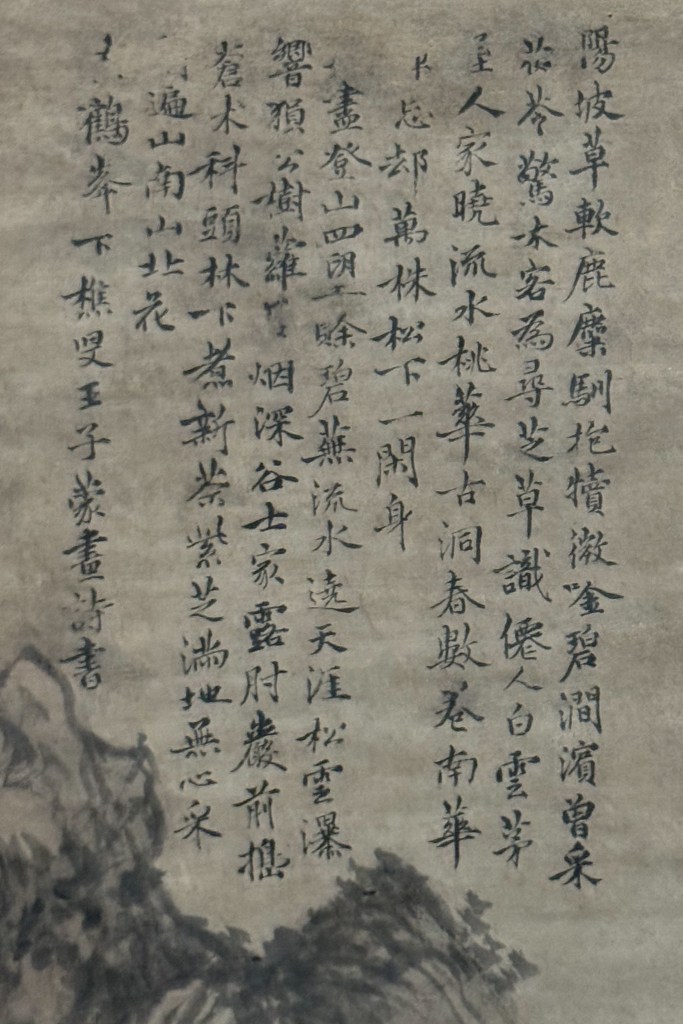 陽坡草軟鹿麋馴抱犢微唫碧澗濱曾采
茯苓驚木客為尋芝草識僊人白雲茅
屋人家曉流水桃華古洞春數卷南華
忘却萬株松下一閑身
盡登山四望賒碧蕪流水遶天涯松雲瀑
響猿公樹蘿烟深谷士家露肘巖前搗
蒼朮科頭林下煮新茶紫芝滿地無心采
遍山南山北花
鶴峯下樵叟王子蒙畫詩書